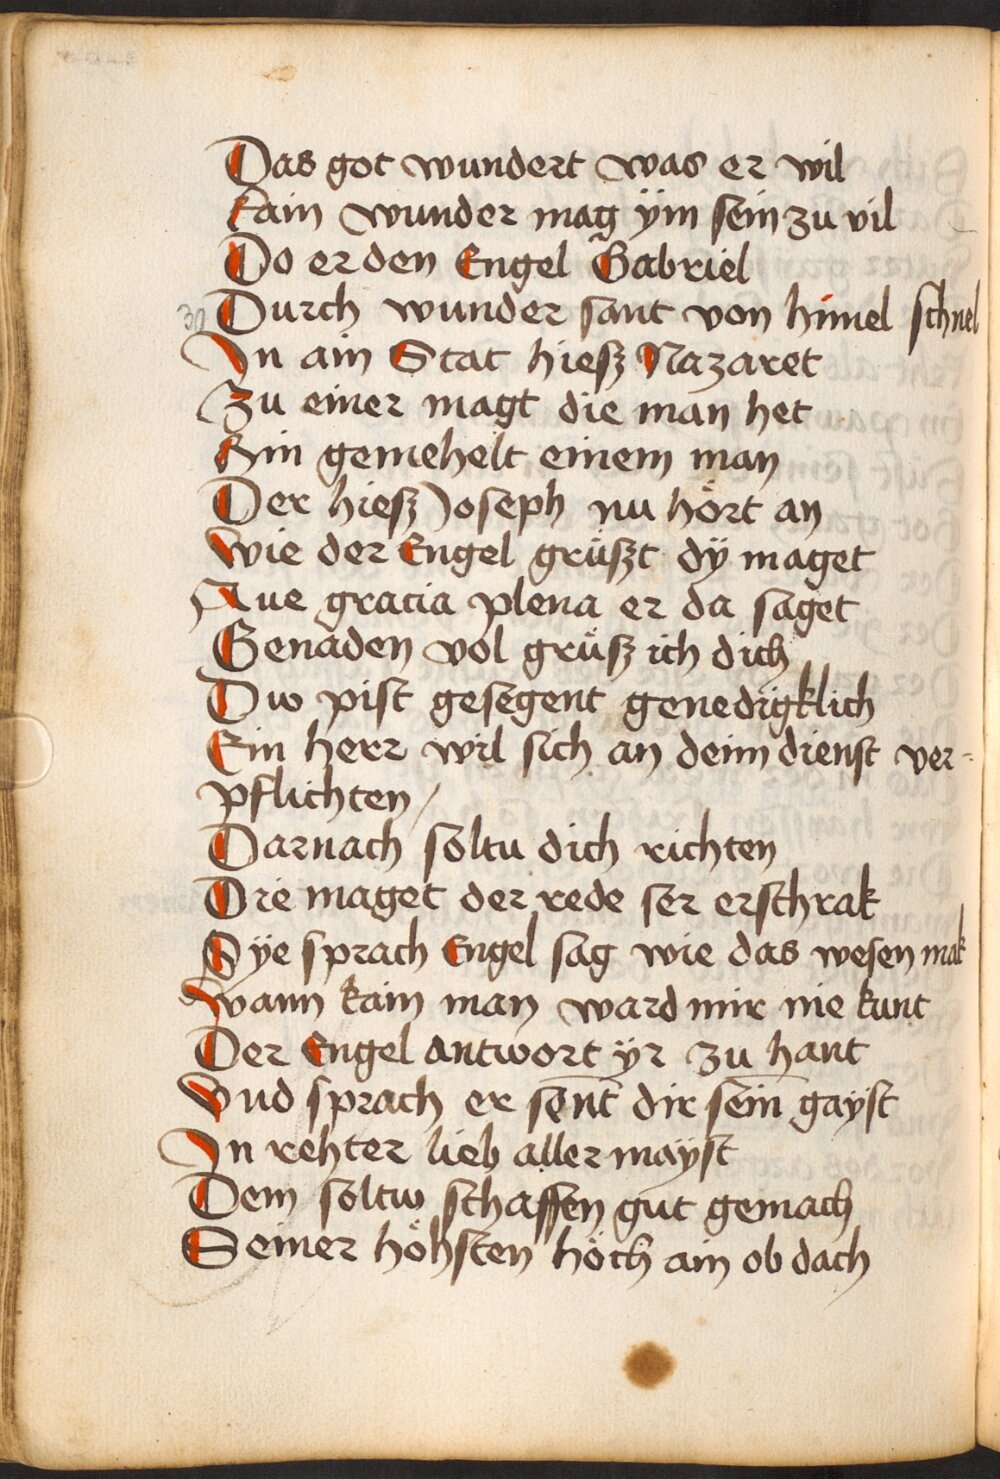 Das got wundert was er wil
kain wunder mag ÿm sein zu vil
Do er den Engel Gabriel
Durch wunder sant von himel schnel
In ain Stat hiesz Nazaret
Zu einer magt die man het
Hin gemehelt einem man
Der hiesz Joseph nu hört an
Wie der Engel grüszt dÿ maget
Aue gracia plena er da saget
Genaden vol grüsz ich dich
Dw pist gesegent genedigklich
Ein herr wil sich an deim dienst ver=
pflichten /
Darnach soltu dich richten
Die maget der rede ser erschrak
Sÿe sprach Engel sag wie das wesen mak
Wann kain man ward mir nie kunt
Der Engel antwort ÿr zu hant
Vnd sprach er sent dir sein gaÿst
In rehter lieb aller maÿst
Dem soltw schaffen gut gemach
Seiner höhsten höch ain ob dach